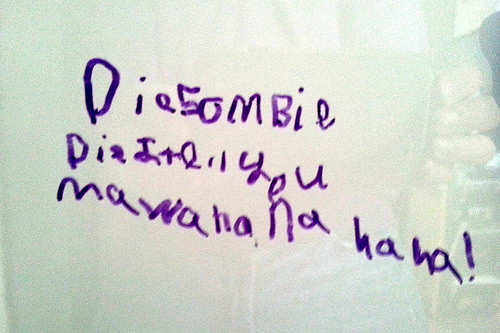 Die Sombie
Die I tell you
mawaha ha haha!